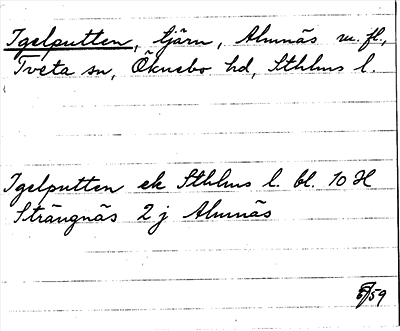 Igelputten, tjärn, Almnäs m. fl.,
Tveta sn, Öknebo hd, Sthlms l.
Igelputten ek Sthlms l. bl. 10 H
Strängnäs 2 j Almnäs
59